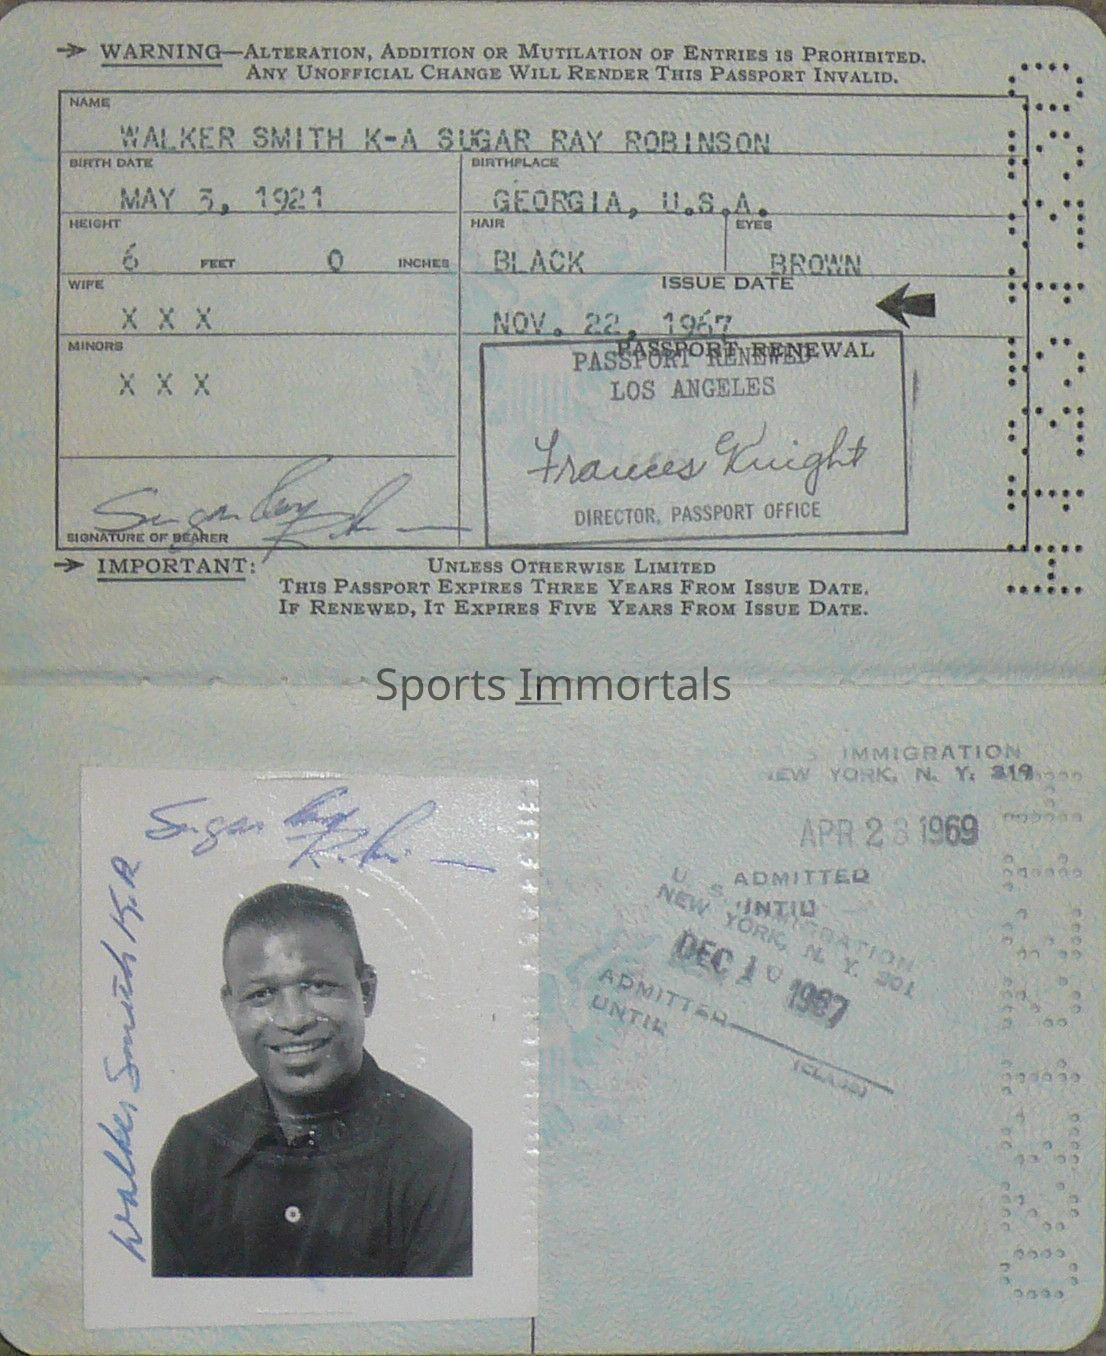 WARNING—ALTERATION, ADDITION OR MUTILATION OF ENTRIES IS PROHIBITED.
ANY UNOFFICIAL CHANGE WILL RENDER THIS PASSPORT INVALID.
NAME
WALKER SMITH K-A SUGAR RAY ROBINSON
BIRTH DATE BIRTHPLACE
MAY 3, 1921 GEORGIA, U.S.A.
HEIGHT HAIR EYES
6 FEET 0 INCHES BLACK BROWN
WIFE ISSUE DATE
X X X NOV. 22, 1967
MINORS PASSPORT RENEWAL
PASSPORT RENEWED
X X X LOS ANGELES
Frances Knight
DIRECTOR, PASSPORT OFFICE
Sugar Ray Robinson
SIGNATURE OF BEARER
IMPORTANT: UNLESS OTHERWISE LIMITED
THIS PASSPORT EXPIRES THREE YEARS FROM ISSUE DATE.
IF RENEWED, IT EXPIRES FIVE YEARS FROM ISSUE DATE.
Sports Immortals
S IMMIGRATION
NEW YORK, N. Y. 319
APR 28 1969
ADMITTED
UNTIL
U. S. IMMIGRATION
NEW YORK, N. Y. 301
DEC 10 1967
ADMITTED
UNTIL
(CLASS)
Sugar Ray Robinson
Walker Smith K.A